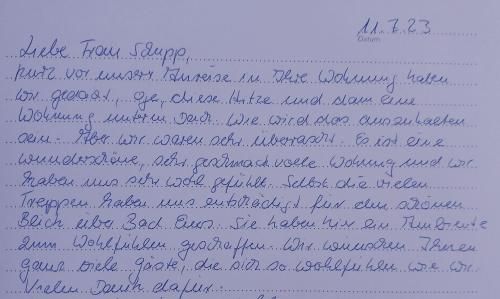 11.7.23
Datum
Liebe Frau Schupp,
kurz vor unserer Anreise in Ihre Wohnung haben
wir gedacht, oje, diese Hitze und dann eine
Wohnung unterm Dach. Wie wird das auszuhalten
sein. Aber wir waren sehr überrascht. Es ist eine
wunderschöne, sehr geschmackvolle Wohnung und wir
haben uns sehr wohl gefühlt. Selbst die vielen
Treppen haben uns entschädigt für den schönen
Blick über Bad Ems. Sie haben hier ein Ambiente
zum Wohlfühlen geschaffen. Wir wünschen Ihnen
ganz viele Gäste, die sich so wohlfühlen wie wir.
Vielen Dank dafür.